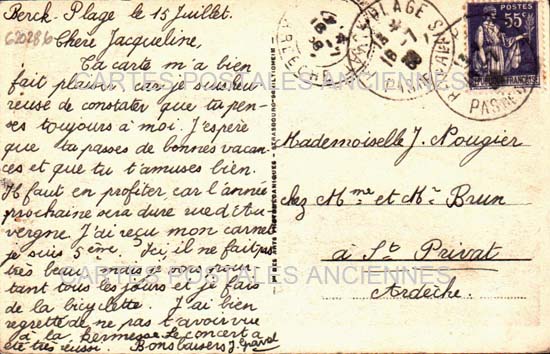 Berck. Plage le 15 Juillet.
620286
Chère Jacqueline,
Ta carte m'a bien
fait plaisir car je suis heu
reuse de constater que tu pen-
ses toujours à moi. J'espère
que tu passes de bonnes vacan-
ces et que tu t'amuses bien.
Il faut en profiter, car l'année
prochaine sera dure rue d'Au-
vergne. J'ai reçu mon carnet
je suis 5ème. Ici, il ne fait pas
très beau mais
tant tous les jours et je fais
de la bicyclette. J'ai bien
regretté de ne pas t'avoir vue
à la kermesse. Le concert a
été très réussi. Bons baisers J.
CARTES POSTALES ANCIENNES
CARTES POSTALES ANCIENNES
POSTES
55c
Mademoiselle J. Nougier
chez Mme et Mr Brun
à St Privat
Ardèche.